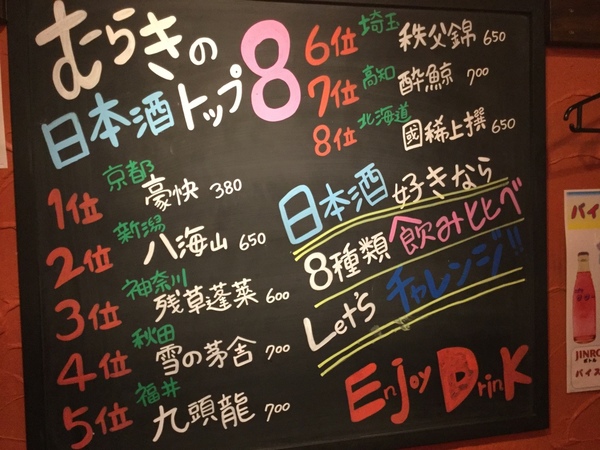 むらきの
日本酒トップ8
1位 京都 豪快 380
2位 新潟 八海山 650
3位 神奈川 残草蓬莱 600
4位 秋田 雪の茅舎 700
5位 福井 九頭龍 700
6位 埼玉 秩父錦 650
7位 高知 酔鯨 700
8位 北海道 國稀上撰 650
日本酒好きなら
8種類飲みととべ
Let's チャレンジ!!
Enjoy DrinK
バイ
JINRO
バイス